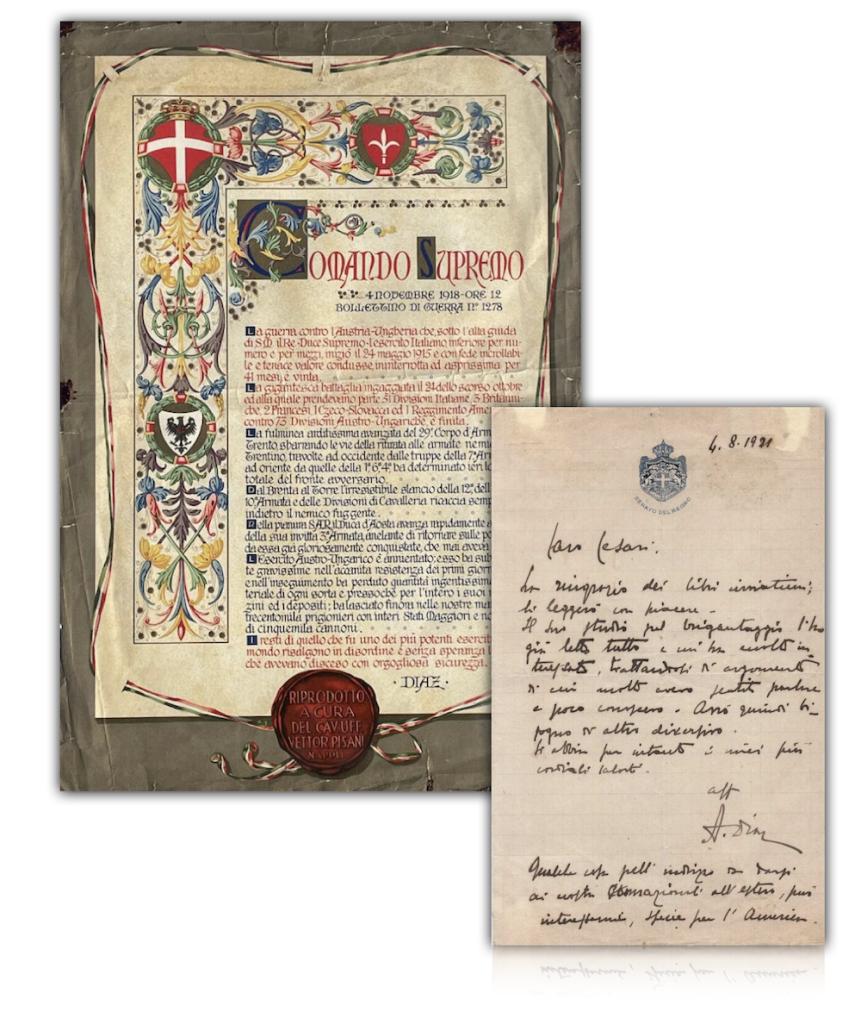 COMANDO SUPREMO
4 NOVEMBRE 1918 - ORE 12
BOLLETTINO DI GUERRA N° 1278
La guerra contro l'Austria-Ungheria che, sotto l'alta guida
di S.M. il Re - Duce Supremo - l'esercito Italiano, inferiore per nu-
mero e per mezzi, iniziò il 24 maggio 1915 e con fede incrollabi-
le e tenace valore condusse, ininterrotta ed asprissima per
41 mesi, è vinta.
La gigantesca battaglia ingaggiata il 24 dello scorso ottobre
ed alla quale prendevano parte 51 Divisioni Italiane, 3 Britanni-
che, 2 Francesi, 1 Czeco-Slovacca ed 1 Reggimento Ame
contro 73 Divisioni Austro-Ungariche, è finita.
La fulminea arditissima avanzata del 29° Corpo d'Arm
Trento, sbarrando le vie della ritirata alle armate nemi
Trentino, travolte ad occidente dalle truppe della 7ª Ar
ad oriente da quelle della 1ª 6ª 4ª ha determinato ieri lo
totale del fronte avversario.
Dal Brenta al Torre l'irresistibile slancio della 12ª, dell
10ª Armata e delle Divisioni di Cavalleria ricaccia semp
indietro il nemico fuggente.
Nella pianura S.A.R. il Duca d'Aosta avanza rapidamente a
della sua invitta 3ª Armata, anelante di ritornare sulle po
da essa già gloriosamente conquistate, che mai aveva
L'Esercito Austro-Ungarico è annientato: esso ha sub
te gravissime nell'accanita resistenza dei primi gior
e nell'inseguimento ha perduto quantità ingentissim
teriale di ogni sorta e pressochè per l'intero i suoi
zini ed i depositi; ha lasciato finora nelle nostre ma
trecentomila prigionieri con interi Stati Maggiori e n
di cinquemila cannoni.
I resti di quello che fu uno dei più potenti eserciti
mondo risalgono in disordine e senza speranza l
che avevano disceso con orgogliosa sicurezza.
· DIAZ ·
RIPRODOTTO
A CURA
DEL CAV. UFF.
VETTOR PISANI
NAPOLI
4.8.1921
SENATO DEL REGNO
Caro Cesari,
La ringrazio dei libri inviatimi;
li leggerò con piacere -
Il suo studio pel brigantaggio l'ho
già letto tutto e mi ha molto in
teressato, trattandosi di argomento
di cui molto avevo sentito parlare
e poco conoscevo - Avrò quindi bi-
sogno di altro
Si abbia per intanto i miei più
cordiali saluti.
aff
A. Diaz
Qualche cosa nell'indirizzo da darsi
ai nostri connazionali all'estero, può
interessarmi, specie per l'America.